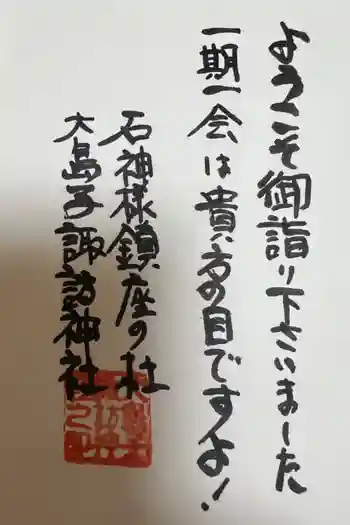 ようこそ御詣り下さいました
一期一会は貴方の目ですよ!
石神様鎮座の杜
大島子諏訪神社